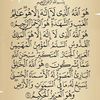 هُوَ اللَّهُ الَّذِي لَا إِلَهَ إِلَّا هُوَ عَالِمُ
الْغَيْبِ وَالشَّهَادَةِ هُوَ الرَّحْمَنُ الرَّحِيمُ
هُوَ اللَّهُ الَّذِي لَا إِلَهَ إِلَّا هُوَ الْمَلِكُ
الْقُدُّوسُ السَّلَامُ الْمُؤْمِنُ الْمُهَيْمِنُ
الْعَزِيزُ الْجَبَّارُ الْمُتَكَبِّرُ سُبْحَانَ اللَّهِ
عَمَّا يُشْرِكُونَ هُوَ اللَّهُ الْخَالِقُ
الْبَارِئُ الْمُصَوِّرُ لَهُ الْأَسْمَاءُ الْحُسْنَى
يُسَبِّحُ لَهُ مَا فِي السَّمَاوَاتِ وَالْأَرْضِ
وَهُوَ الْعَزِيزُ الْحَكِيمُ